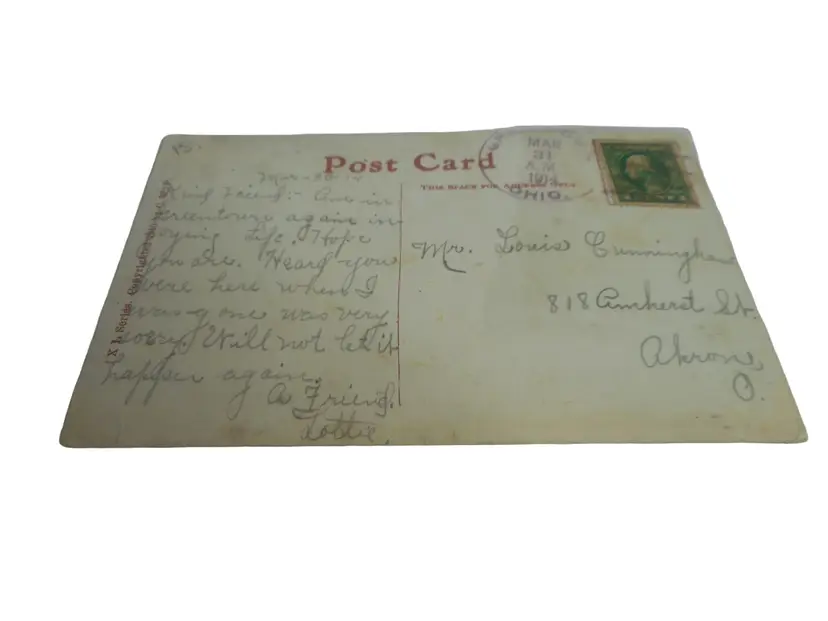 Post Card
THIS SPACE FOR ADDRESS ONLY
MAR
31
A.M.
OHIO
Kind Friend:- Am in
Greentown again in-
joying life. Hope
you are. Heard you
were here when I
was gone was very
sorry. Will not let it
happen again.
A Friend.
Lottie.
Mr. Louis Cunningham
818 Amherst St.
Akron,
O.
X L Series.